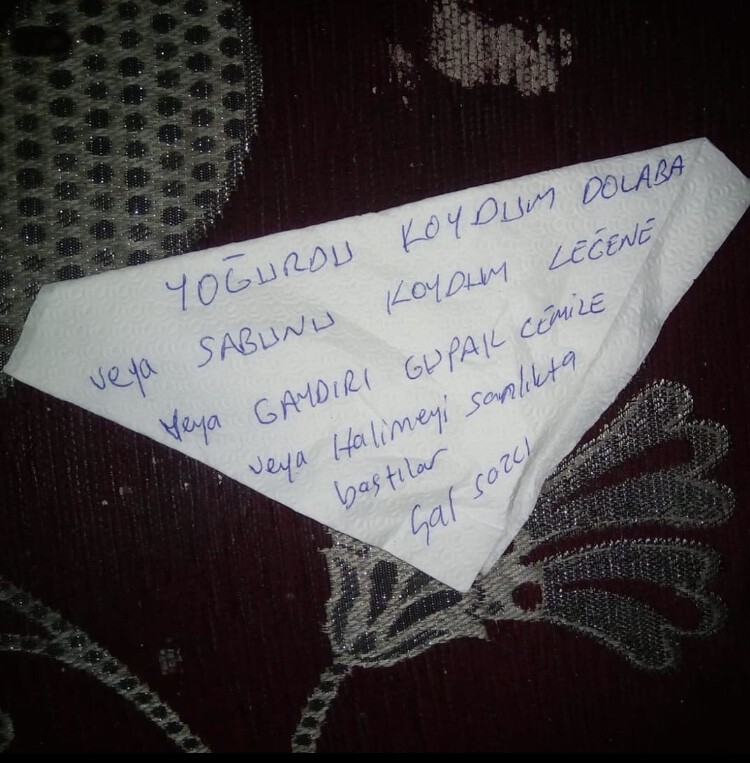 YOĞURDU KOYDUM DOLABA
veya SABUNU KOYDUM LEĞENE
veya GAYDIRI GUPAK CEMİLE
veya Halimeyi samlıkta
bastılar
Çal sözcü